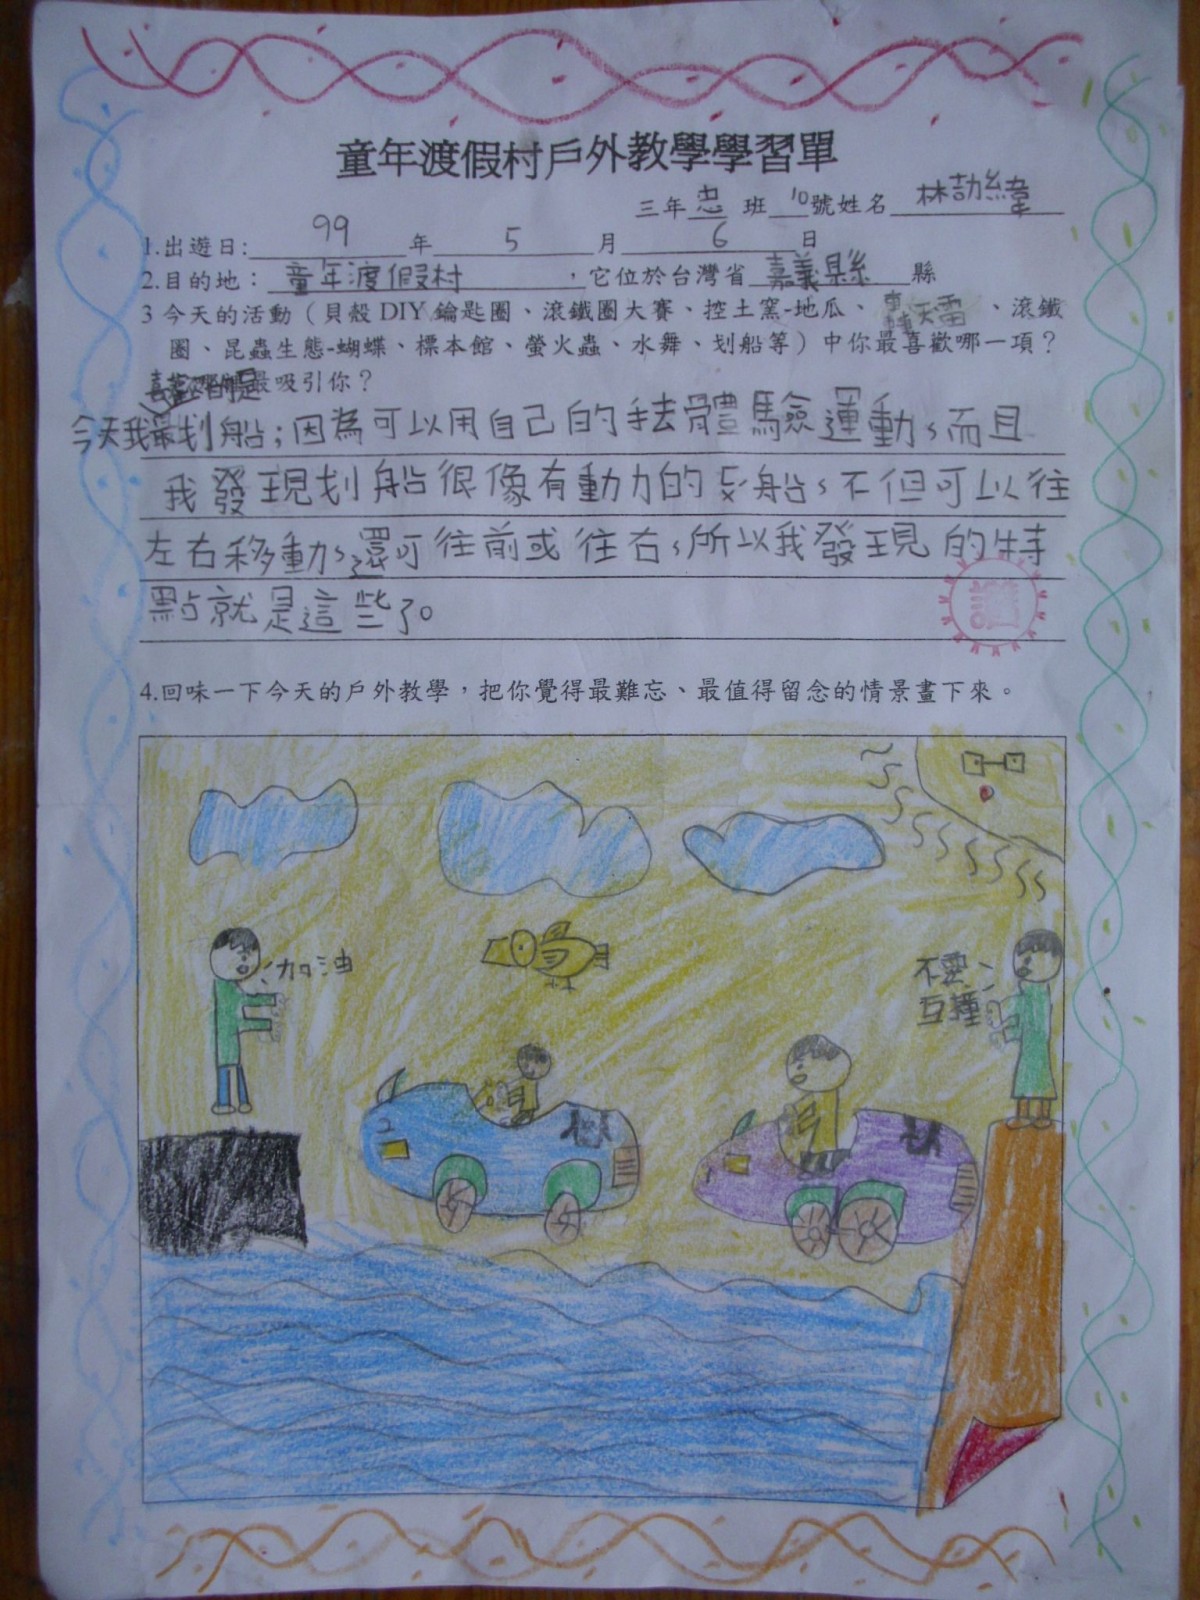 童年渡假村戶外教學學習單
三年忠 班 10號姓名 林劼緯
1.出遊日: 99 年 5 月 6 日
2.目的地：童年渡假村 ，它位於台灣省 嘉義縣 縣
3 今天的活動（貝殼 DIY 鑰匙圈、滾鐵圈大賽、控土窯-地瓜、轟天雷 、滾鐵
圈、昆蟲生態-蝴蝶、標本館、螢火蟲、水舞、划船等）中你最喜歡哪一項？
最吸引你？
今天我最喜歡的是划船；因為可以用自己的手去體驗運動、而且
我發現划船很像有動力的船、不但可以往
左右移動、還可往前或往右、所以我發現的特
點就是這些了。
4.回味一下今天的戶外教學，把你覺得最難忘、最值得留念的情景畫下來。
加油
不要
互撞